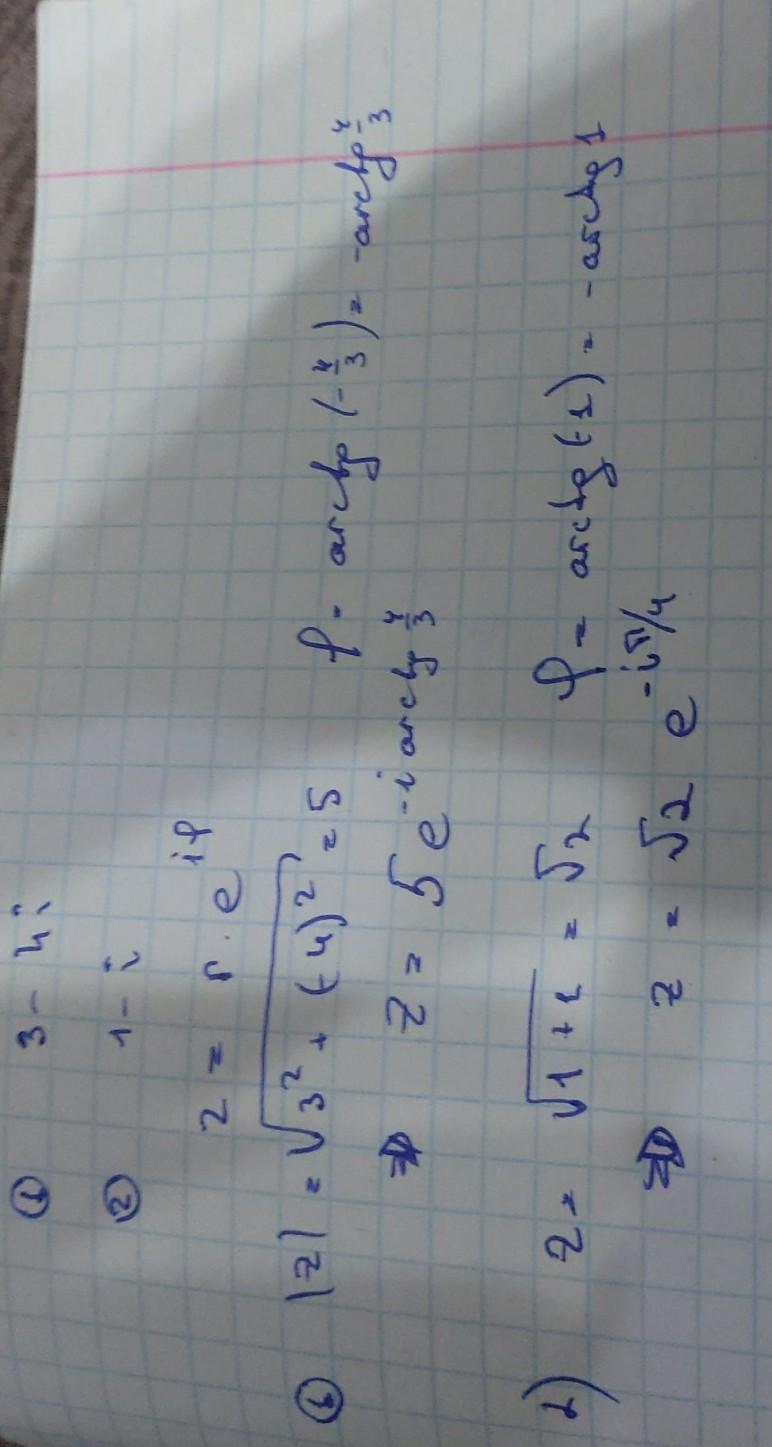 ① 3 - 4i
② 1 - i
z = r · e^{iφ}
① |z| = √(3² + (-4)²) = 5 φ = arctg (-4/3) = -arctg 4/3
⇒ z = 5 e^{-i arctg 4/3}
2) z = √(1 + 1) = √2 φ = arctg (-1) = -arctg 1
⇒ z = √2 e^{-iπ/4}